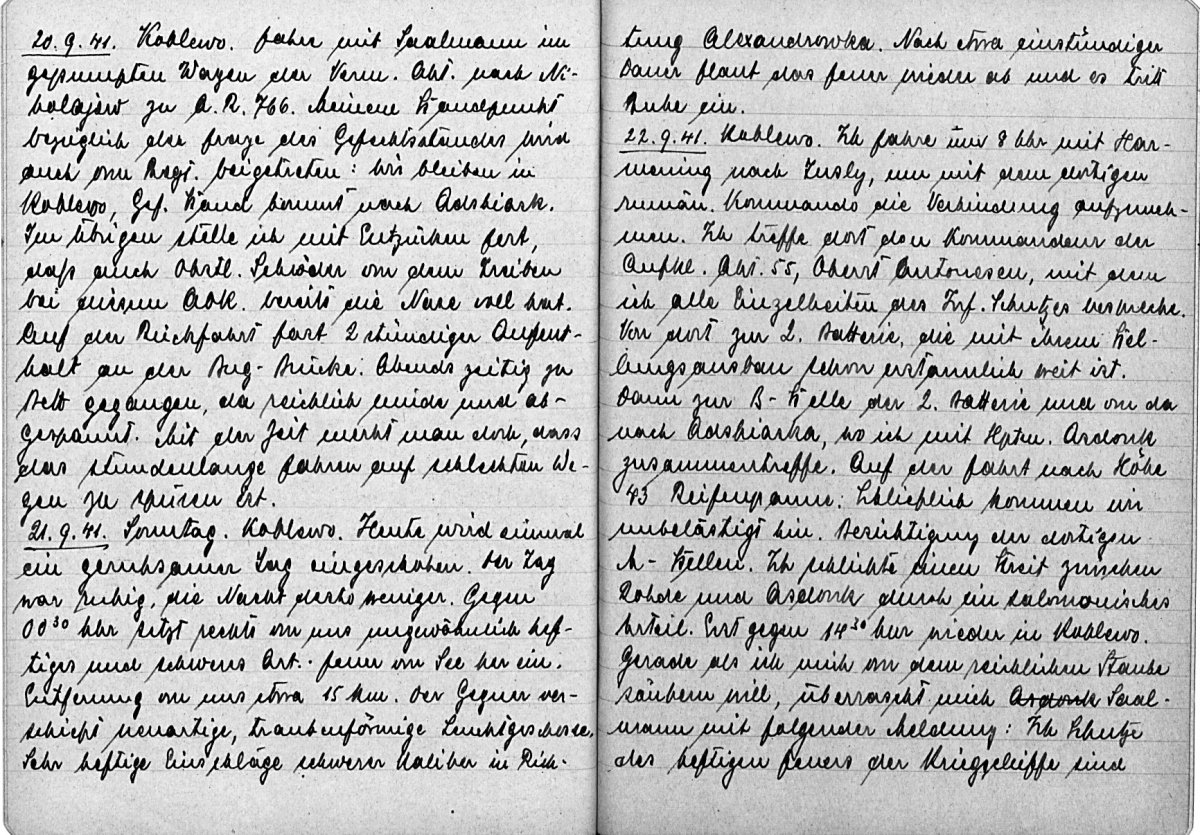 20.9.41. Koblewo. Fahre mit Saalmann im
gepumpten Wagen der Verm. Abt. nach Ni-
kolajew zu A.R. 766. Meinem Standpunkt
bezüglich der Frage des Gefechtsstandes wird
auch vom Regt. beigetreten: wir bleiben in
Koblewo, Gef. Stand kommt nach Adshiask.
Im übrigen stelle ich mit Entzücken fest,
daß auch Obstl. Schröder von dem Treiben
bei diesem AOK. bereits die Nase voll hat.
Auf der Rückfahrt fast 2 stündiger Aufent-
halt an der Bug-Brücke. Abends zeitig zu
Bett gegangen, da reichlich müde und ab-
gespannt. Mit der Zeit merkt man doch, dass
das stundenlange Fahren auf schlechten We-
gen zu spüren ist.
21.9.41. Sonntag. Koblewo. Heute wird einmal
ein geruhsamer Tag eingeschoben. Der Tag
war ruhig, die Nacht desto weniger. Gegen
00³⁰ Uhr setzt rechts von uns ungewöhnlich hef-
tiges und schweres Art.-Feuer von See her ein.
Entfernung von uns etwa 15 km. Der Gegner ver-
schießt neuartige, traubenförmige Leuchtgeschosse.
Sehr heftige Einschläge schwerer Kaliber in Rich-
tung Alexandrowka. Nach etwa einstündiger
Dauer flaut das Feuer wieder ab und es tritt
Ruhe ein.
22.9.41. Koblewo. Ich fahre um 8 Uhr mit Har-
mening nach Tusly, um mit dem dortigen
rumän. Kommando die Verbindung aufzuneh-
men. Ich treffe dort den Kommandeur der
Aufkl. Abt. 55, Oberst Antonescu, mit dem
ich alle Einzelheiten des Inf. Schutzes bespreche.
Von dort zur 2. Batterie, die mit ihrem Stel-
lungsausbau schon erstaunlich weit ist.
Dann zur B-Stelle der 2. Batterie und von da
nach Adshiaska, wo ich mit Hptm. Asdonk
zusammentreffe. Auf der Fahrt nach Höhe
43 Reifenpanne. Schließlich kommen wir
unbelästigt hin. Besichtigung der dortigen
M-Stellen. Ich schlichte einen Streit zwischen
Rohde und Asdonk durch ein salomonisches
Urteil. Erst gegen 14³⁰ Uhr wieder in Koblewo.
Gerade als ich mich von dem reichlichen Staube
säubern will, überrascht mich Asdonk Saal-
mann mit folgender Meldung: Im Schutze
des heftigen Feuers der Kriegsschiffe sind